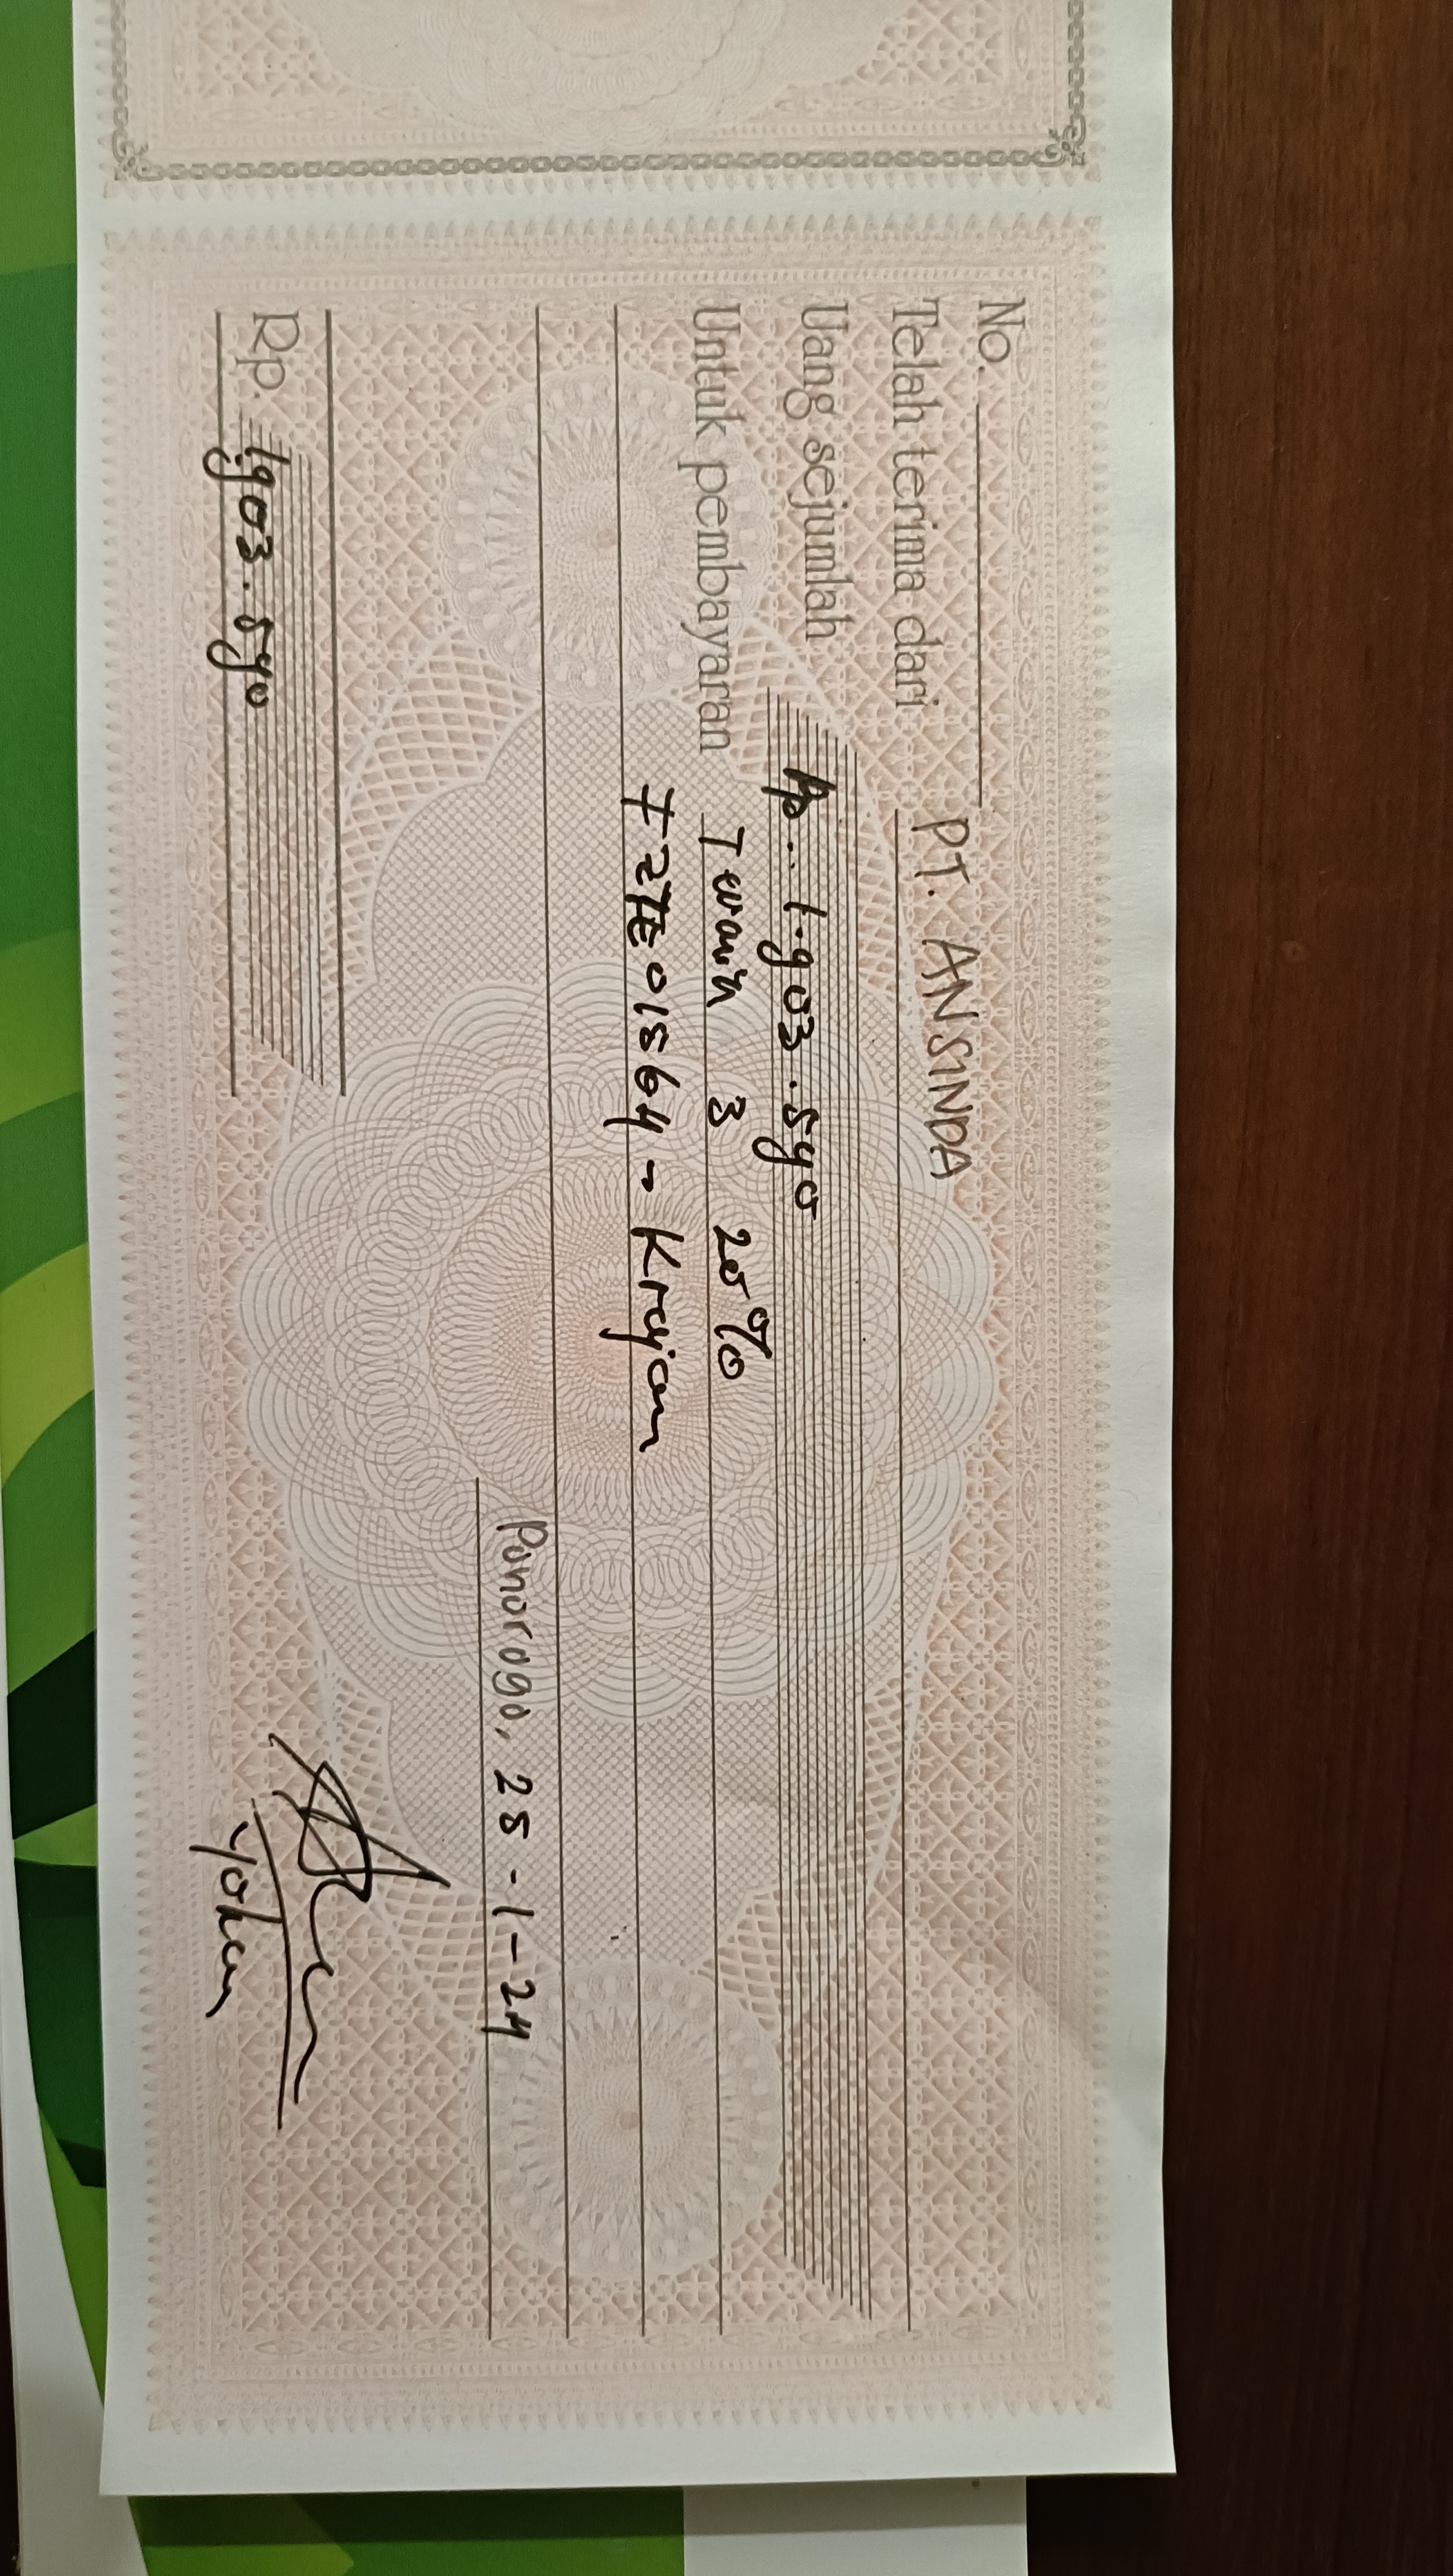 No.
Telah terima dari PT. ANSINDA
Uang sejumlah Rp.. 1.903.590
Untuk pembayaran Termin 3 20%
FZTE01564 - Krajan
Ponorogo, 25 -1-24
Rp. 1.903.590
Yohan